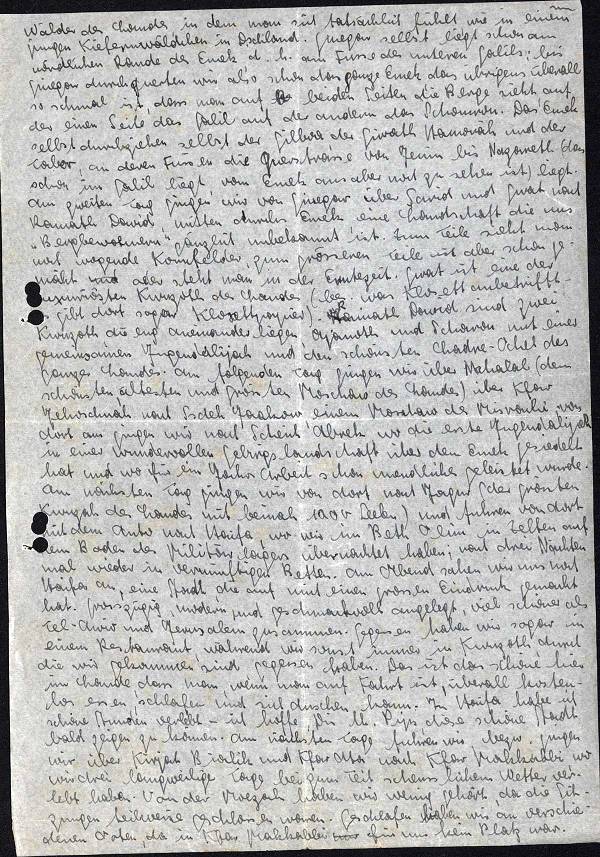 Wälder des Landes in dem man sich tatsächlich fühlt wie in einem
jungen Kiefernwäldchen in Dschland. Ginegar selbst liegt schon am
nördlichen Rande des Emek d.h. am Fusse des unteren Galils; bis
Ginegar durchquerten wir also schon das ganze Emek das übrigens überall
so schmal ist, dass man auf beiden Seiten die Berge sieht auf
der einen Seite das Galil auf der andern das Schomron. Das Emek
selbst durchziehen selbst der Gilboa der Giwath Hamoreh und der
Tabor, an deren Fussen die Querstrasse von Jenin bis Nazareth (das
schon im Galil liegt vom Emek aus aber nicht zu sehen ist) liegt.
Am zweiten Tag gingen wir von Ginegar über Sarid und Gwat nach
Ramath Dawid mitten durchs Emek eine Landschaft die uns
"Bergbewohnern" gänzlich unbekannt ist. Zum Teile sieht man
noch wogende Kornfelder zum grösseren Teile ist aber schon ge-
mäht oder steht man in der Erntezeit. Gwat ist eine der
luxuriösten Kwuzoth des Landes (bes. was Klosett anbetrifft -
es gibt dort sogar Klozettpapier). Ramath Dawid sind zwei
Kwuzoth die eng aneinander liegen Ajanoth und Scharon mit einer
gemeinsamen Jugendalijah und den schönsten Chadre-Ochel des
ganzen Landes. Am folgenden Tag gingen wir über Nahalal (dem
schönsten ältesten und grössten Moschaw des Landes) über Kfar
Jehoschuah nach Sdeh Jaakow einem Moschaw des Misrachi, von
dort aus gingen wir nach Scheich Abrek wo die erste Jugendalijah
in einer wundervollen Gebirgslandschaft über dem Emek gesiedelt
hat und wo für ein Jahr Arbeit schon unendliches geleistet wurde.
Am nächsten Tag gingen wir von dort nach Jagur (der grössten
Kwuzah des Landes mit beinah 1000 Seelen) und fuhren von dort
mit dem Auto nach Haifa wo wir im Beth Olim in Zelten auf
dem Boden des Militärlagers übernachtet haben, nach drei Nächten
mal wieder in vernünftigen Betten. Am Abend sahen wir uns noch
Haifa an, eine Stadt die auf mich einen grossen Eindruck gemacht
hat. Grosszügig modern und geschmackvoll angelegt, viel schöner als
Tel-Awiw und Jerusalem zusammen. Gegessen haben wir sogar in
einem Restaurant während wir sonst immer in Kwuzoth durch
die wir gekommen sind gegessen haben. Das ist das schöne hier
im Lande dass man, wenn man auf Fahrt ist, überall kosten-
los essen, schlafen und sich duschen kann. In Haifa habe ich
schöne Stunden verlebt - ich hoffe Dir l. diese schöne Stadt
bald zeigen zu können. Am nächsten Tage fuhren wir bezw. gingen
wir über Kirjath Bialik und Kfar Ata nach Kfar Makkabbi wo
wir drei langweilige Tage bei zum Teil scheusslichem Wetter ver-
lebt haben. Von der Moezah haben wir wenig gehört, da die Sit-
zungen teilweise geschlossen waren. Geschlafen haben wir an verschie-
denen Orten, da in Kfar Makkabbi für uns kein Platz war.